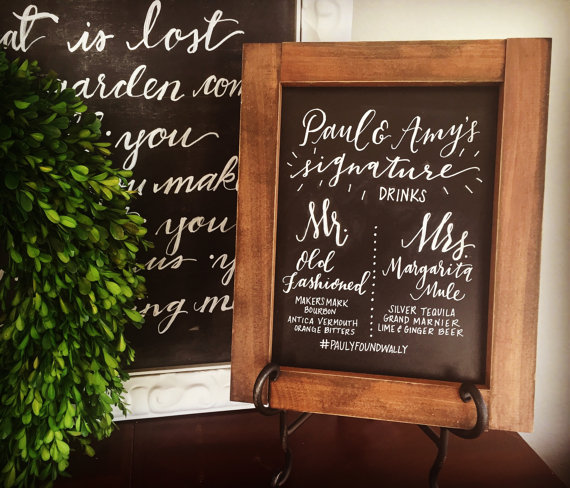 is lost
garden
you
you
you
Paul & Amy's
signature
DRINKS
Mr.
Old
Fashioned
MAKERS MARK
BOURBON
ANTICA VERMOUTH
ORANGE BITTERS
Mrs.
Margarita
Mule
SILVER TEQUILA
GRAND MARNIER
LIME & GINGER BEER
#PAULYFOUNDWALLY